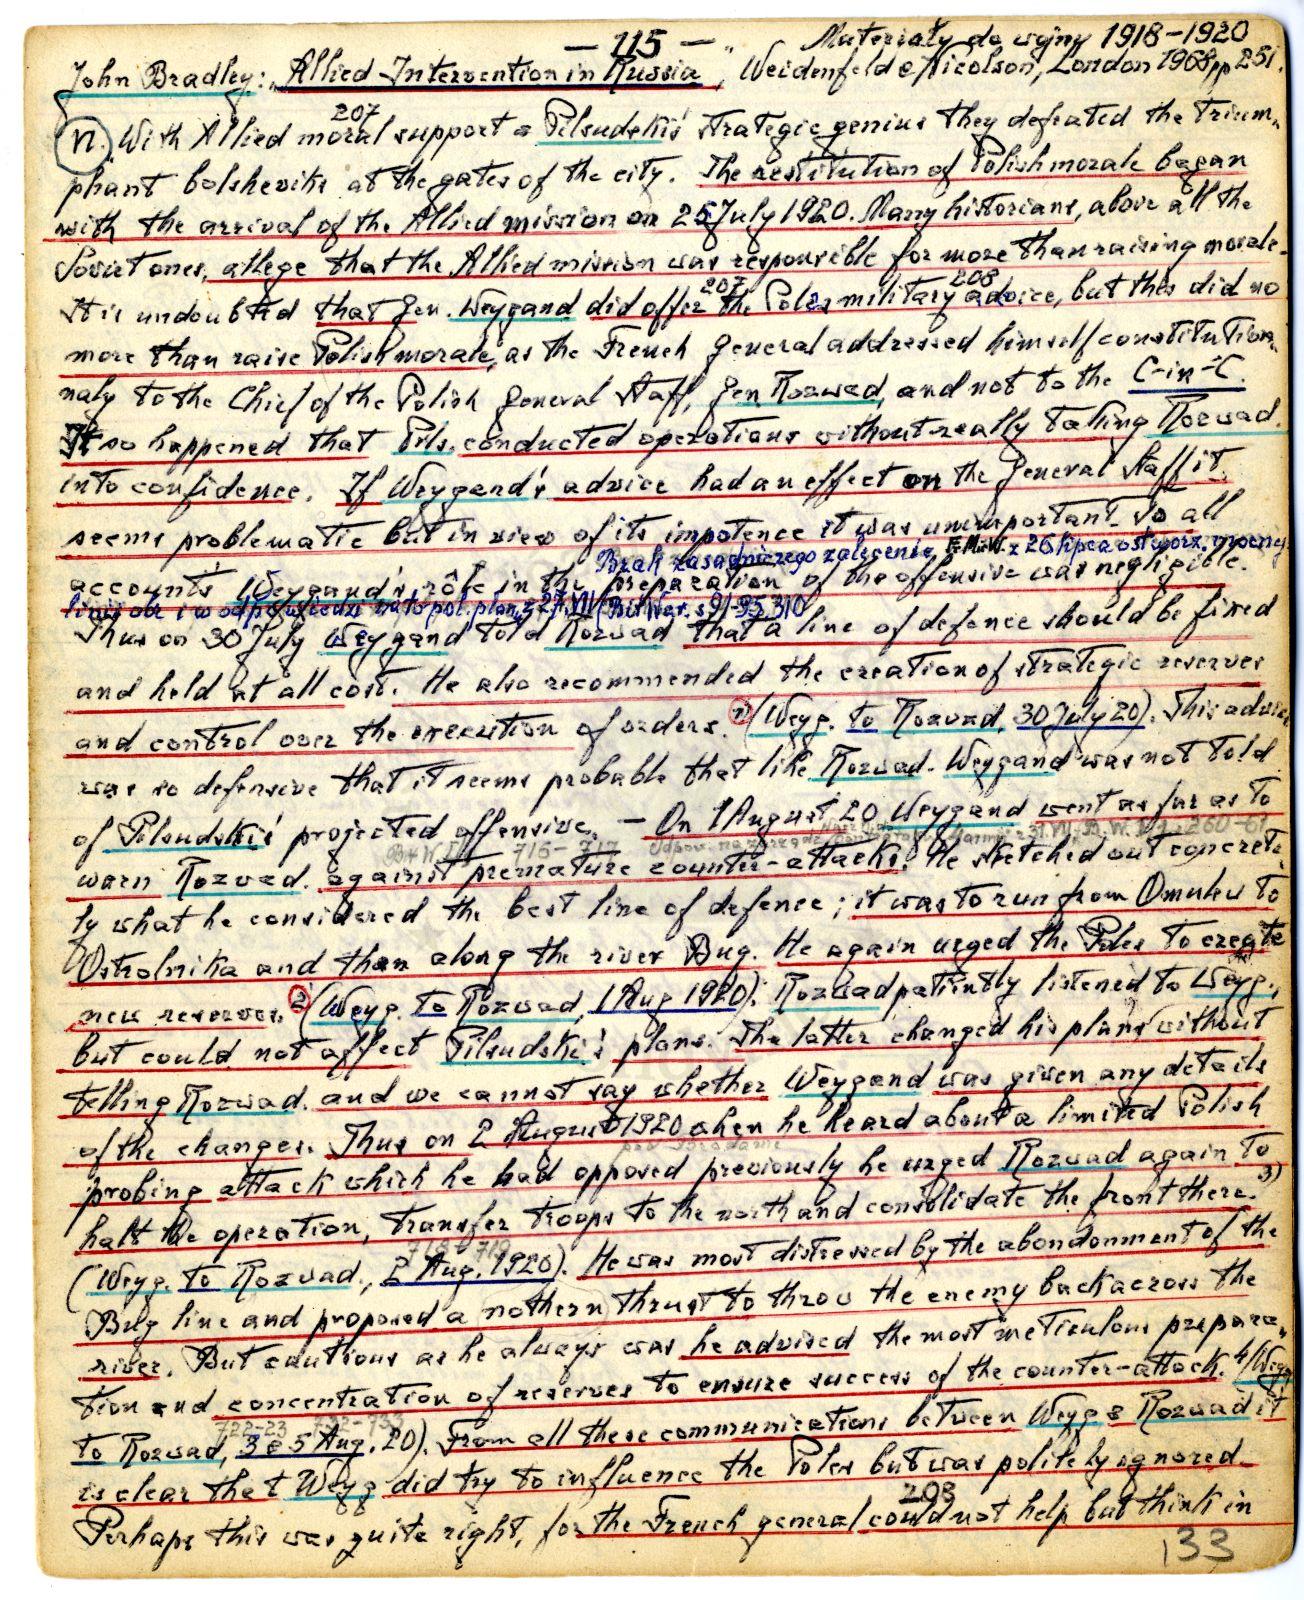 — 115 — „ Materiały do wojny 1918-1920
John Bradley: „Allied Intervention in Russia", Weidenfeld & Nicolson, London 1968, pp 251.
207
n. With Allied moral support & Pilsudski's strategic genius they defeated the trium-
phant bolsheviks at the gates of the city. The restitution of Polish morale began
with the arrival of the Allied mission on 25 July 1920. Many historians, above all the
Soviet ones, allege that the Allied mission was responsible for more than raising morale.
207 208
It is undoubted that Gen. Weygand did offer the Poles military advice, but this did no
more than raise Polish morale, as the French General addressed himself constitution-
naly to the Chief of the Polish General Staff, Gen Rozwad, and not to the C-in-C.
It so happened that Pils. conducted operations without really taking Rozwad.
into confidence. If Weygand's advice had an effect on the General Staff it
seems problematic but in view of its impotence it was unimportant. To all
Brak zasadniczego zalecenia, z 26 lipca
accounts Weygand's rôle in the preparation of the offensive was negligible.
linii obr. i w odpowiedzi na to pol. plan z 27.VII (Bit. War. s. 91-95, 310
Thus on 30 July Weygand told Rozwad that a line of defence should be fixed
and held at all cost. He also recommended the creation of strategic reserves
and control over the execution of orders. 1) (Weyg. to Rozwad, 30 July 20). This advice
was so defensive that it seems probable that like Rozwad. Weygand was not told
of Pilsudski's projected offensive. — On 1 August 20 Weygand went as far as to
716-717
warn Rozwad. against premature counter-attacks. He sketched out concrete-
ly what he considered the best line of defence; it was to run from Omulew to
Ostrolnika and than along the river Bug. He again urged the Poles to create
new reserves. 2) (Weyg. to Rozwad, 1 Aug 1920). Rozwad patiently listened to Weyg.,
but could not affect Pilsudski's plans. The latter changed his plans without
telling Rozwad. and we cannot say whether Weygand was given any details
of the changes. Thus on 2 August 1920 when he heard about a limited Polish
pod Brodami
probing attack which he had opposed previously he urged Rozwad again to
halt the operation, transfer troops to the north and consolidate the front there. 3)
718-719
(Weyg. to Rozwad., 2 Aug. 1920). He was most distressed by the abondonment of the
Bug line and proposed a nothern thrust to throw the enemy back across the
river. But cautious as he always was he advised the most meticulous prepara-
tion and concentration of reserves to ensure success of the counter-attack. 4/(Weyg
722-23 732-733
to Rozwad, 3 & 5 Aug. 20). From all these communications between Weyg & Rozwad it
is clear that Weyg did try to influence the Poles but was politely ignored.
208
Perhaps this was quite right, for the French general could not help but think in
133